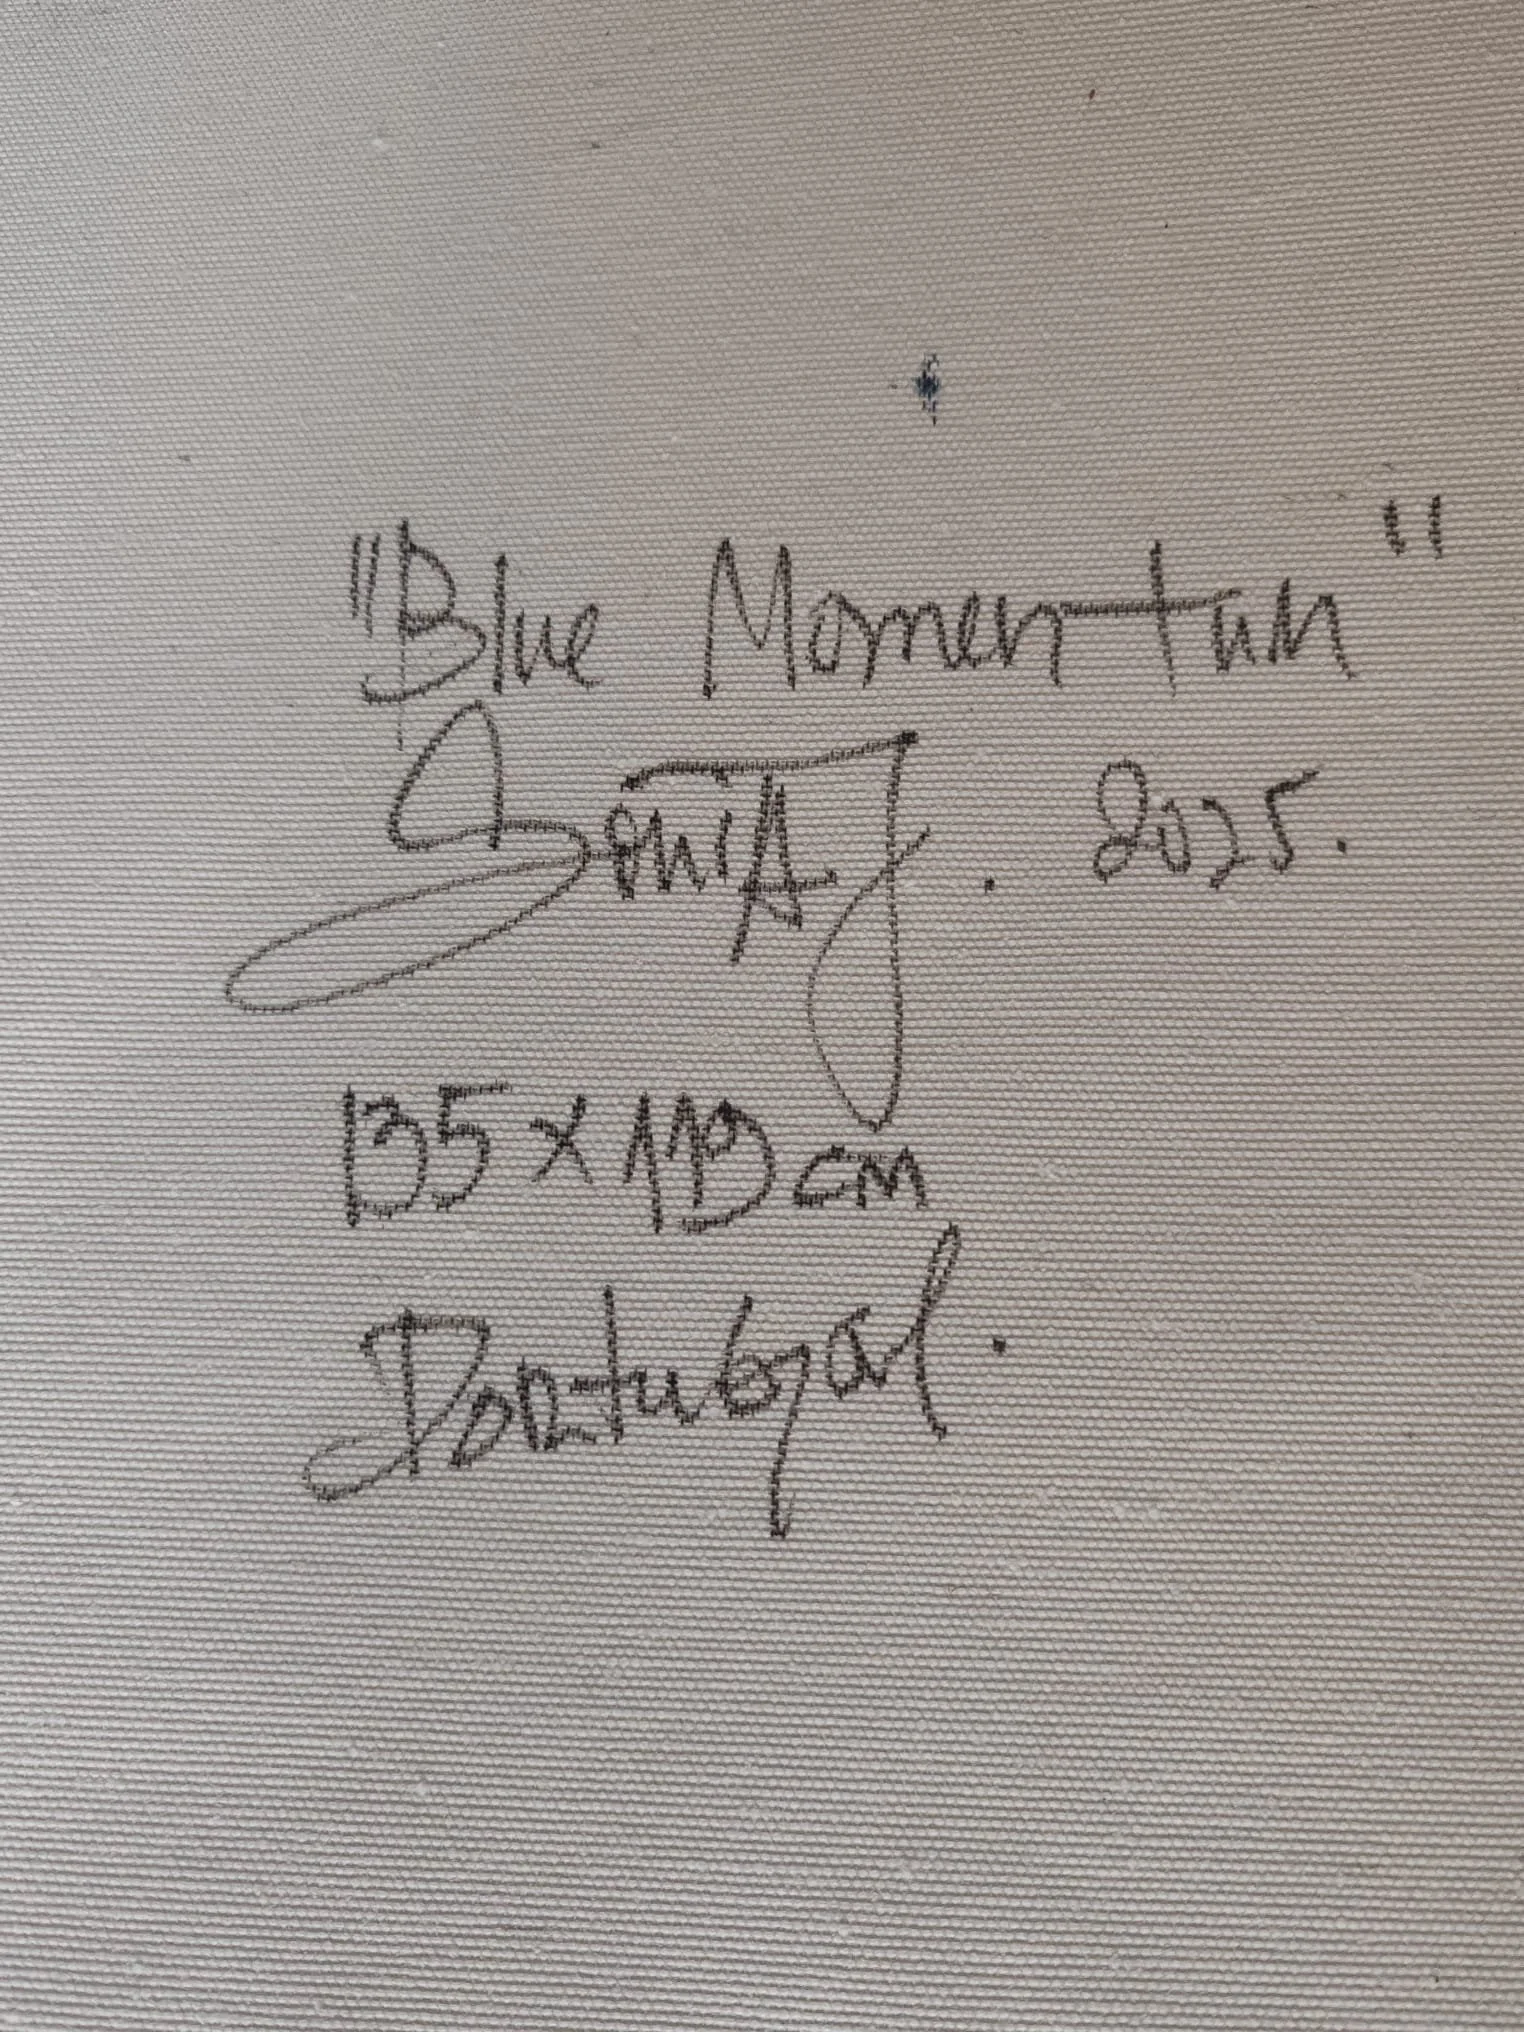 "Blue Momentum"
SoniA J. 2025.
135 x 119 cm
Portugal.